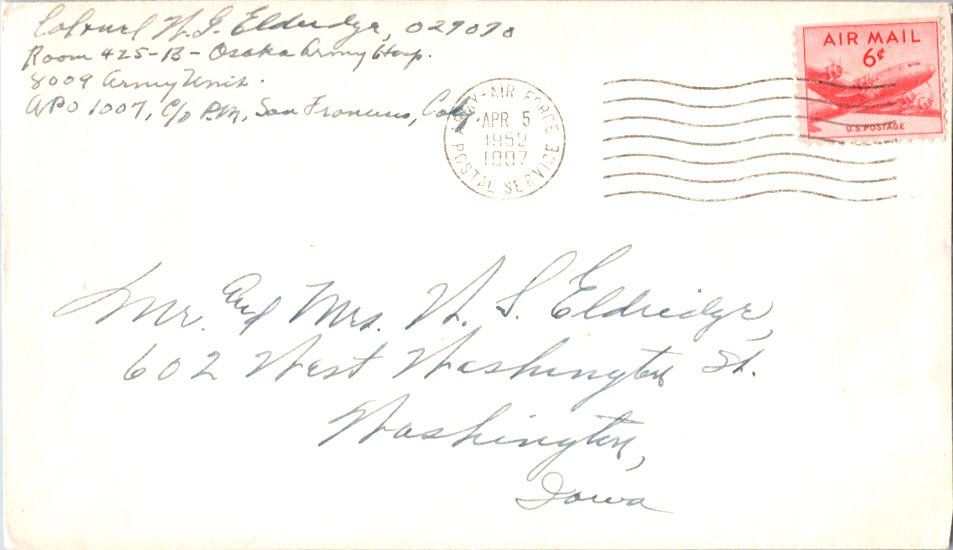 Colonel W. G. Eldridge, 029070
Room 425-B - Osaka Army Hosp.
8009 Army Unit.
APO 1007, c/o P.M., San Francisco, Calif.
ARMY-AIR FORCE
POSTAL SERVICE
APR 5
1952
1007
AIR MAIL
6¢
U.S. POSTAGE
Mr. and Mrs. W. S. Eldridge,
602 West Washington St.
Washington,
Iowa